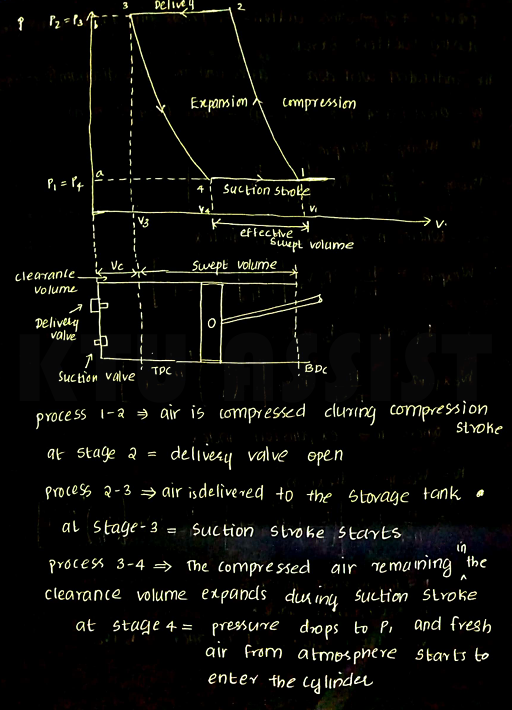 3 Delivery 2
P P₂ = P₃ b
Expansion compression
a
P₁ = P₄
4 suction stroke 1
V₃ V₄ V₁ V.
effective
swept volume
Vc swept volume
clearance
volume
Delivery
valve
O
suction valve TDC BDC
KTU ASSIST
process 1-2 ⇒ air is compressed during compression
stroke
at stage 2 = delivery valve open
process 2-3 ⇒ air is delivered to the storage tank.
at stage-3 = suction stroke starts
process 3-4 ⇒ The compressed air remaining in the
clearance volume expands during suction stroke
at stage 4 = pressure drops to P₁ and fresh
air from atmosphere starts to
enter the cylinder